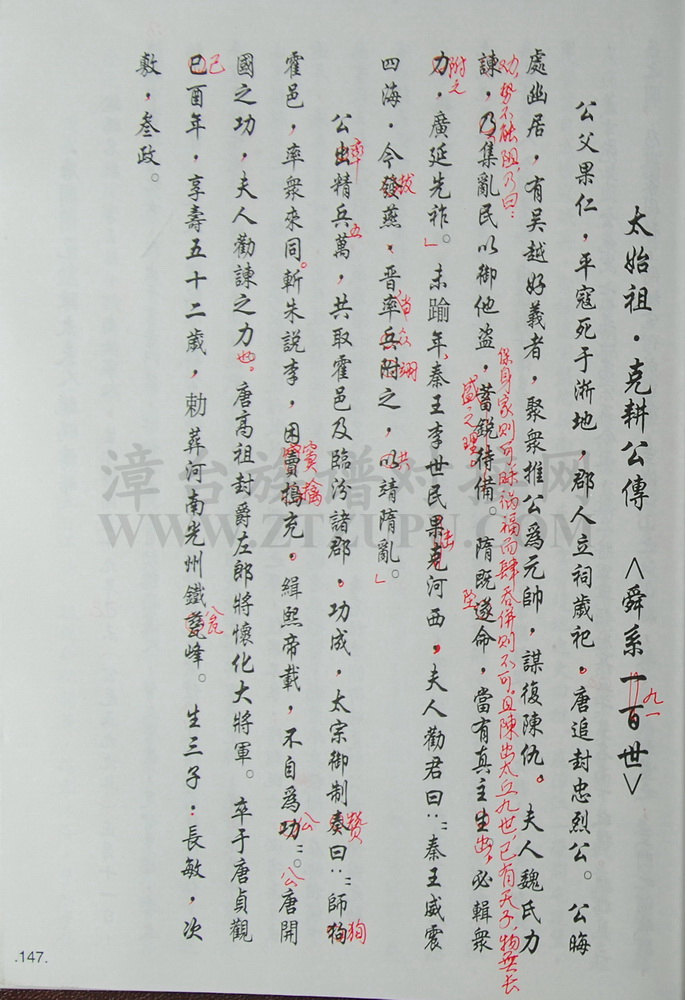 太始祖．克耕公傳　＜舜系一百世＞
九一
公父果仁，平寇死于浙地，郡人立祠歲祀。唐追封忠烈公。公晦
處幽居，有吴越好義者，聚衆推公爲元帥，謀復陳仇。夫人魏氏力
劝，势不能阻，乃曰：
保身家則可，昧禍福而肆吞併則不可，且陳出太丘九世，已有天子，物無長
諫，乃集亂民以御他盜，蓄鋭待備。隋既遂命，當有真主生，必輯衆
盛之理。
坠
出
附之
力，廣延先祚。」未踰年，秦王李世民果克河西，夫人勸君曰：〝秦王威震
四海．今發燕、晋率兵附之，以靖隋亂。」
拔
公出精兵萬，共取霍邑及臨汾諸郡。功成，太宗御制奏曰：〝師狗
率
五
贊
狗
霍邑，率衆來同。斬朱説李，困竇搗充。緝熙帝載，不自爲功〞。唐開
竇擒
公
公
國之功，夫人勸諫之力。唐高祖封爵左郎將懷化大將軍。卒于唐貞觀
也。
巳酉年，享壽五十二歲，勅葬河南光州鐵甕峰。生三子：長敏，次
己
八瓮
敷，叁政。
漳台族谱对接网
WWW.ZTZUPU.COM
.147.